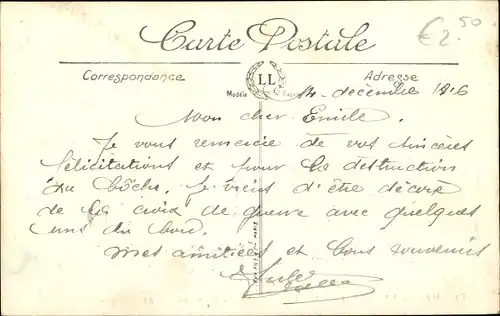 €2.50
Carte Postale
Correspondance
LL
Adresse
Modèle
14 décembre 1916
Mon cher Emile.
Je vous remercie de vos sincères
félicitations et pour la destruction
du bôche. Je viens d'être décoré
de la croix de guerre avec quelques
uns du bord.
Mes amitiées et bons souvenirs